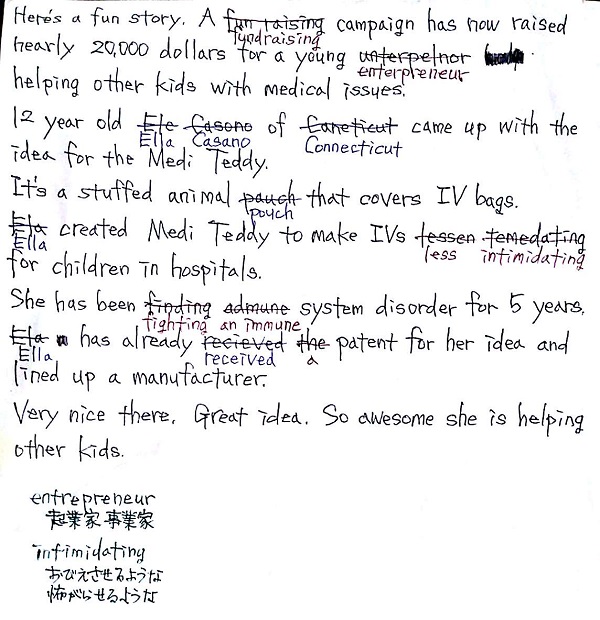 Here's a fun story. A fun raising campaign has now raised
fundraising
nearly 20,000 dollars for a young unterpelnor
enterpreneur
helping other kids with medical issues.
12 year old Ele Casono of Caneticut came up with the
Ella Casano Connecticut
idea for the Medi Teddy.
It's a stuffed animal pauch that covers IV bags.
pouch
Ela created Medi Teddy to make IVs lessen temedating
Ella less intimidating
for children in hospitals.
She has been finding admune system disorder for 5 years.
fighting an immune
Ela has already recieved the patent for her idea and
Ella received a
lined up a manufacturer.
Very nice there. Great idea. So awesome she is helping
other kids.
entrepreneur
起業家 事業家
intimidating
おびえさせるような
怖がらせるような